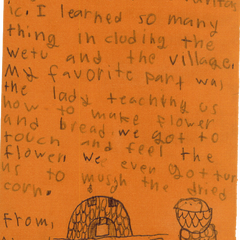 ic. I learned so many
thing in cloding the
wetu and the village.
My favorite part was
the lady teaching us
how to make flower
and bread. we got to
touch and feel the
flower we even got
us to mush the dried
corn.
From,